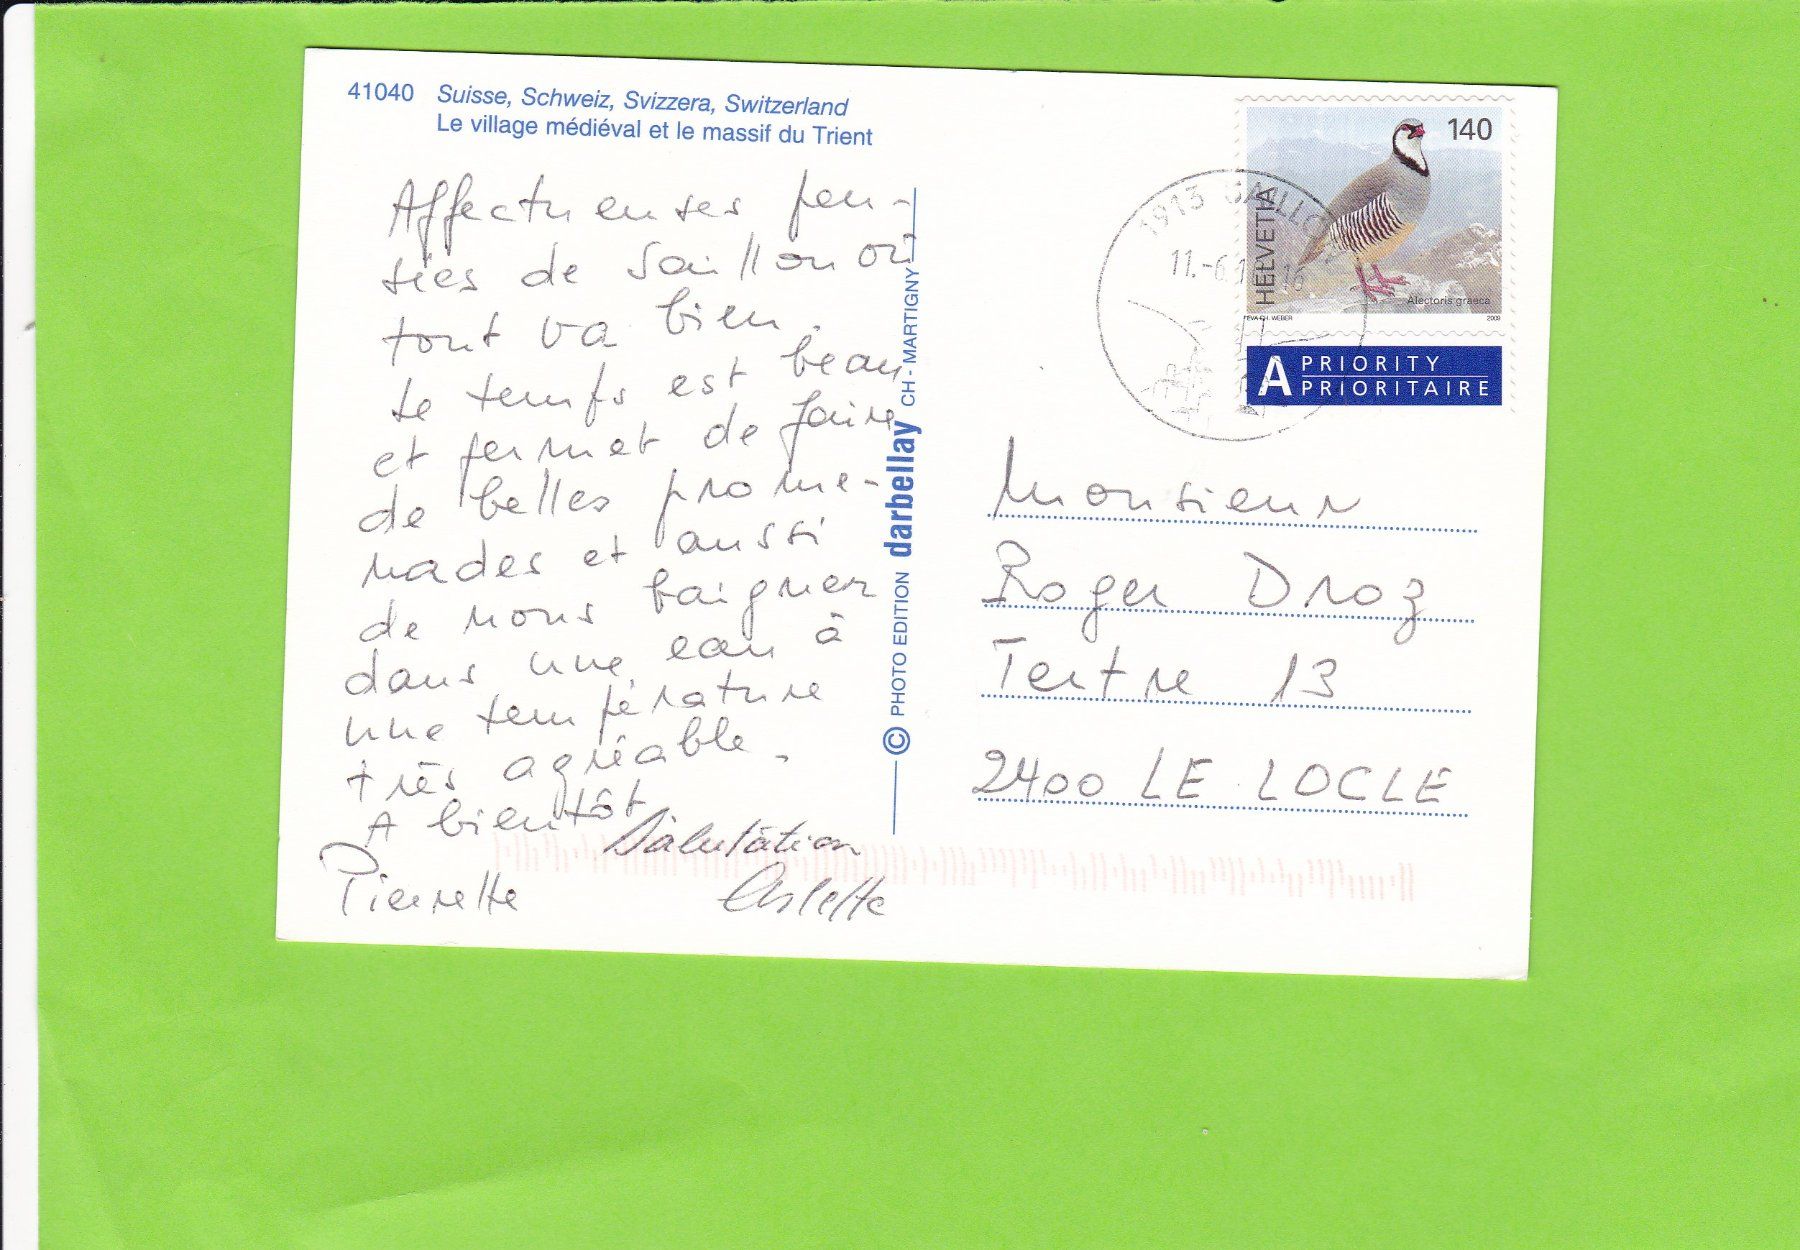 41040 Suisse, Schweiz, Svizzera, Switzerland
Le village médiéval et le massif du Trient
Affectueuses pen-
sées de Saillon où
tout va bien.
Le temps est beau
et permet de faire
de belles prome-
nades et aussi
de nous baigner
dans une eau à
une température
très agréable.
A bientôt
Salutation
Pierrette
Arlette
© PHOTO EDITION darbellay CH - MARTIGNY
1913 SAILLON
11.-6.1
16
140
HELVETIA
Alectoris graeca
2009
A PRIORITY
PRIORITAIRE
Monsieur
Roger Droz
Tertre 13
2400 LE LOCLE